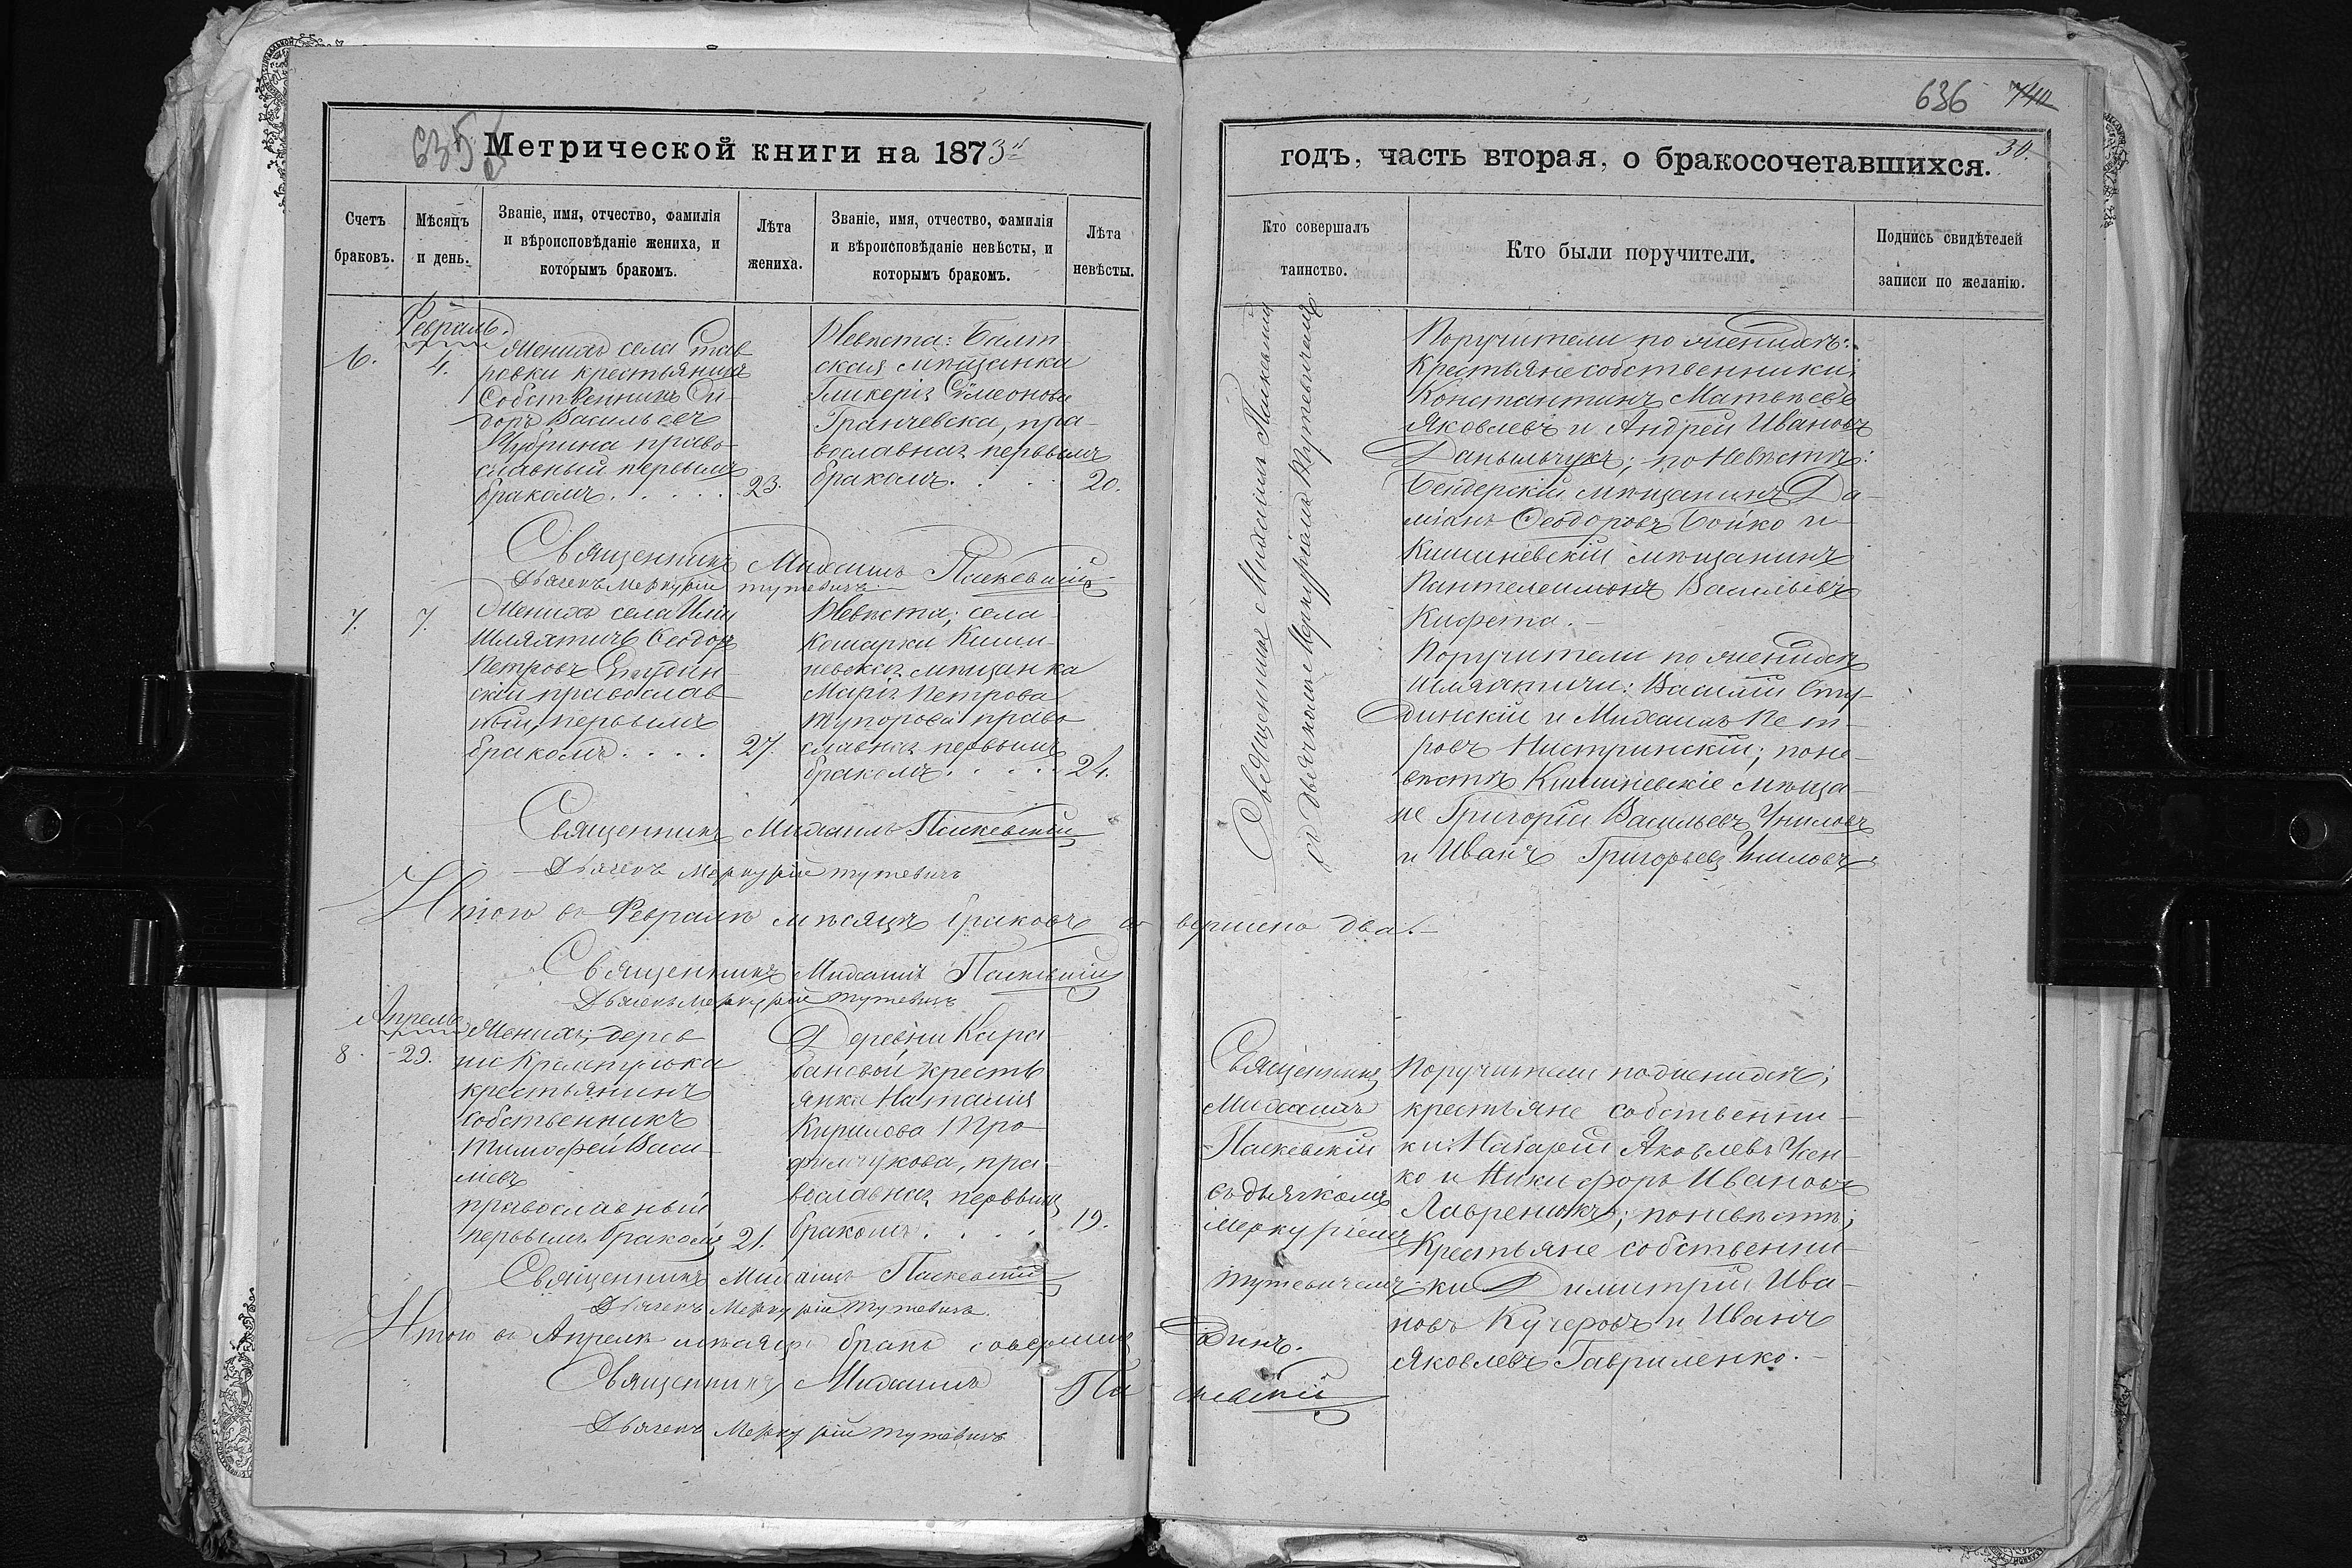 635
636
Метрической книги на 1873й
годъ, часть вторая, о бракосочетавшихся.
30.
Счетъ браковъ.
Мѣсяцъ и день.
Званіе, имя, отчество, фамилія
и вѣроисповѣданіе жениха, и
которымъ бракомъ.
Лѣта жениха.
Званіе, имя, отчество, фамилія
и вѣроисповѣданіе невѣсты, и
которымъ бракомъ.
Лѣта невѣсты.
Кто совершалъ
таинство.
Кто были поручители.
Подпись свидѣтелей
записи по желанію.
Февраль.
6.
4.
Женихъ села Став
ровки крестьянинъ
Собственникъ Си-
доръ Васильевъ
право
славный первымъ
бракомъ.
23.
Невѣста: Балт
ская мѣщанка
Гликерія Сѵмеонова
Гранчевска, пра-
вославная первымъ
бракомъ.
20.
Священникъ Михаилъ Паскевскій
Дьячекъ Меркурій Тутевичъ
Священникъ Михаилъ
съ Дьячкомъ Меркуріемъ Тутевичемъ
Поручители по женихѣ:
Крестьяне собственники,
Константинъ Матвѣевъ
Яковлевъ и Андрей Ивановъ
Даныльчукъ; по невѣстѣ:
Бендерскій мѣщанинъ Да-
міанъ Ѳеодоровъ Бойко и
Кишиневскій мѣщанинъ
Пантелеимонъ Васильевъ
Кифета.
7.
7.
Женихъ села
Шляхтичъ Ѳеодоръ
Петровъ
скій православ
ный, первымъ
бракомъ
27.
Невѣста; села
Кошарки Киши-
невская мѣщанка
Марія Петрова
Тупорова право
славная первымъ
бракомъ.
24.
Священникъ Михаилъ Паскевскій
Дьячекъ Меркурій Тутевичъ
Поручители по женихѣ
шляхтичи: Василій Сту-
динскій и Михаилъ Пет-
ровъ Нистринскій; по не-
вѣстѣ Кишиневскіе мѣща-
не Григорій Васильевъ
и Иванъ Григорьевъ
Итого въ Февралѣ мѣсяцѣ браковъ совершено два.
Священникъ Михаилъ Паскевскій
Дьячекъ Меркурій Тутевичъ
Апрель
8.
29.
Женихъ; дерев
ни
крестьянинъ
собственникъ
Тимофей Васи-
лиевъ
православный
первымъ бракомъ
21.
Деревни Кара
бановой кресть
янка Наталія
Кирилова Тро-
фимчукова, пра-
вославная первымъ
бракомъ.
19.
Священникъ
Михаилъ
Паскевскій
съ дьячкомъ
Меркуріемъ
Тутевичемъ
Поручители по женихѣ;
крестьяне собственни-
ки: Назарій Яковлевъ
ко и Никифоръ Ивановъ
Лавренюкъ; по невѣстѣ;
Крестьяне собственни-
ки Димитрій Ива-
новъ Кучеровъ и Иванъ
Яковлевъ Гавриленко.
Священникъ Михаилъ Паскевскій
Дьячекъ Меркурій Тутевичъ
Итого въ Апрелѣ мѣсяцѣ бракъ совершенъ одинъ.
Священникъ Михаилъ Паскевскій
Дьячекъ Меркурій Тутевичъ